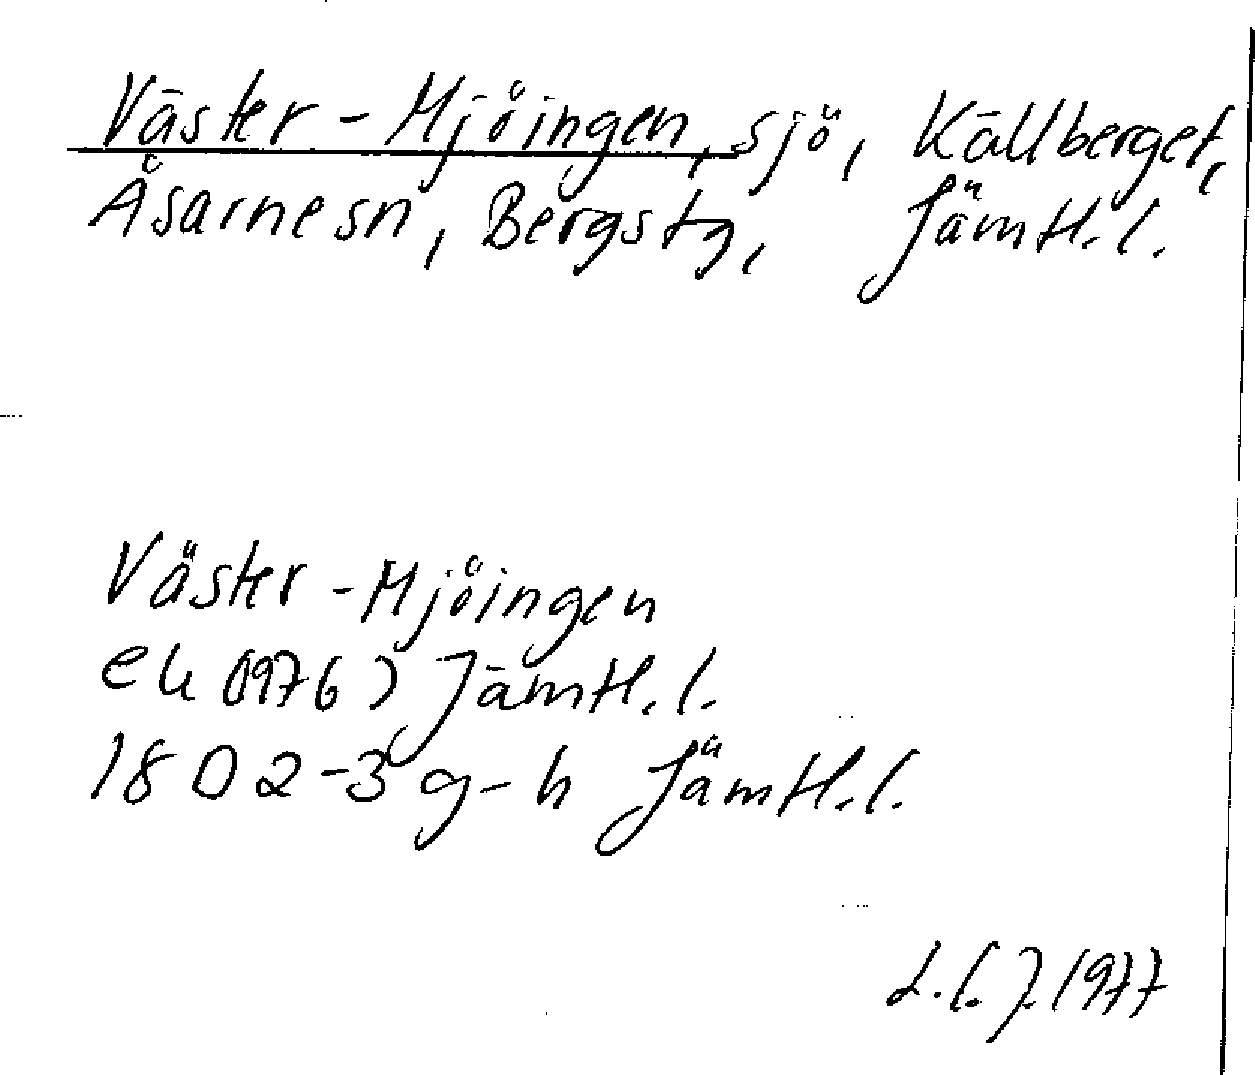 Väster-Mjöingen, sjö, Källberget,
Åsarnesn, Bergstg, Jämtl. l.
Väster-Mjöingen
ek (1976) Jämtl. l.
18D 2-3 g-h Jämtl. l.
L. l. J. 1977